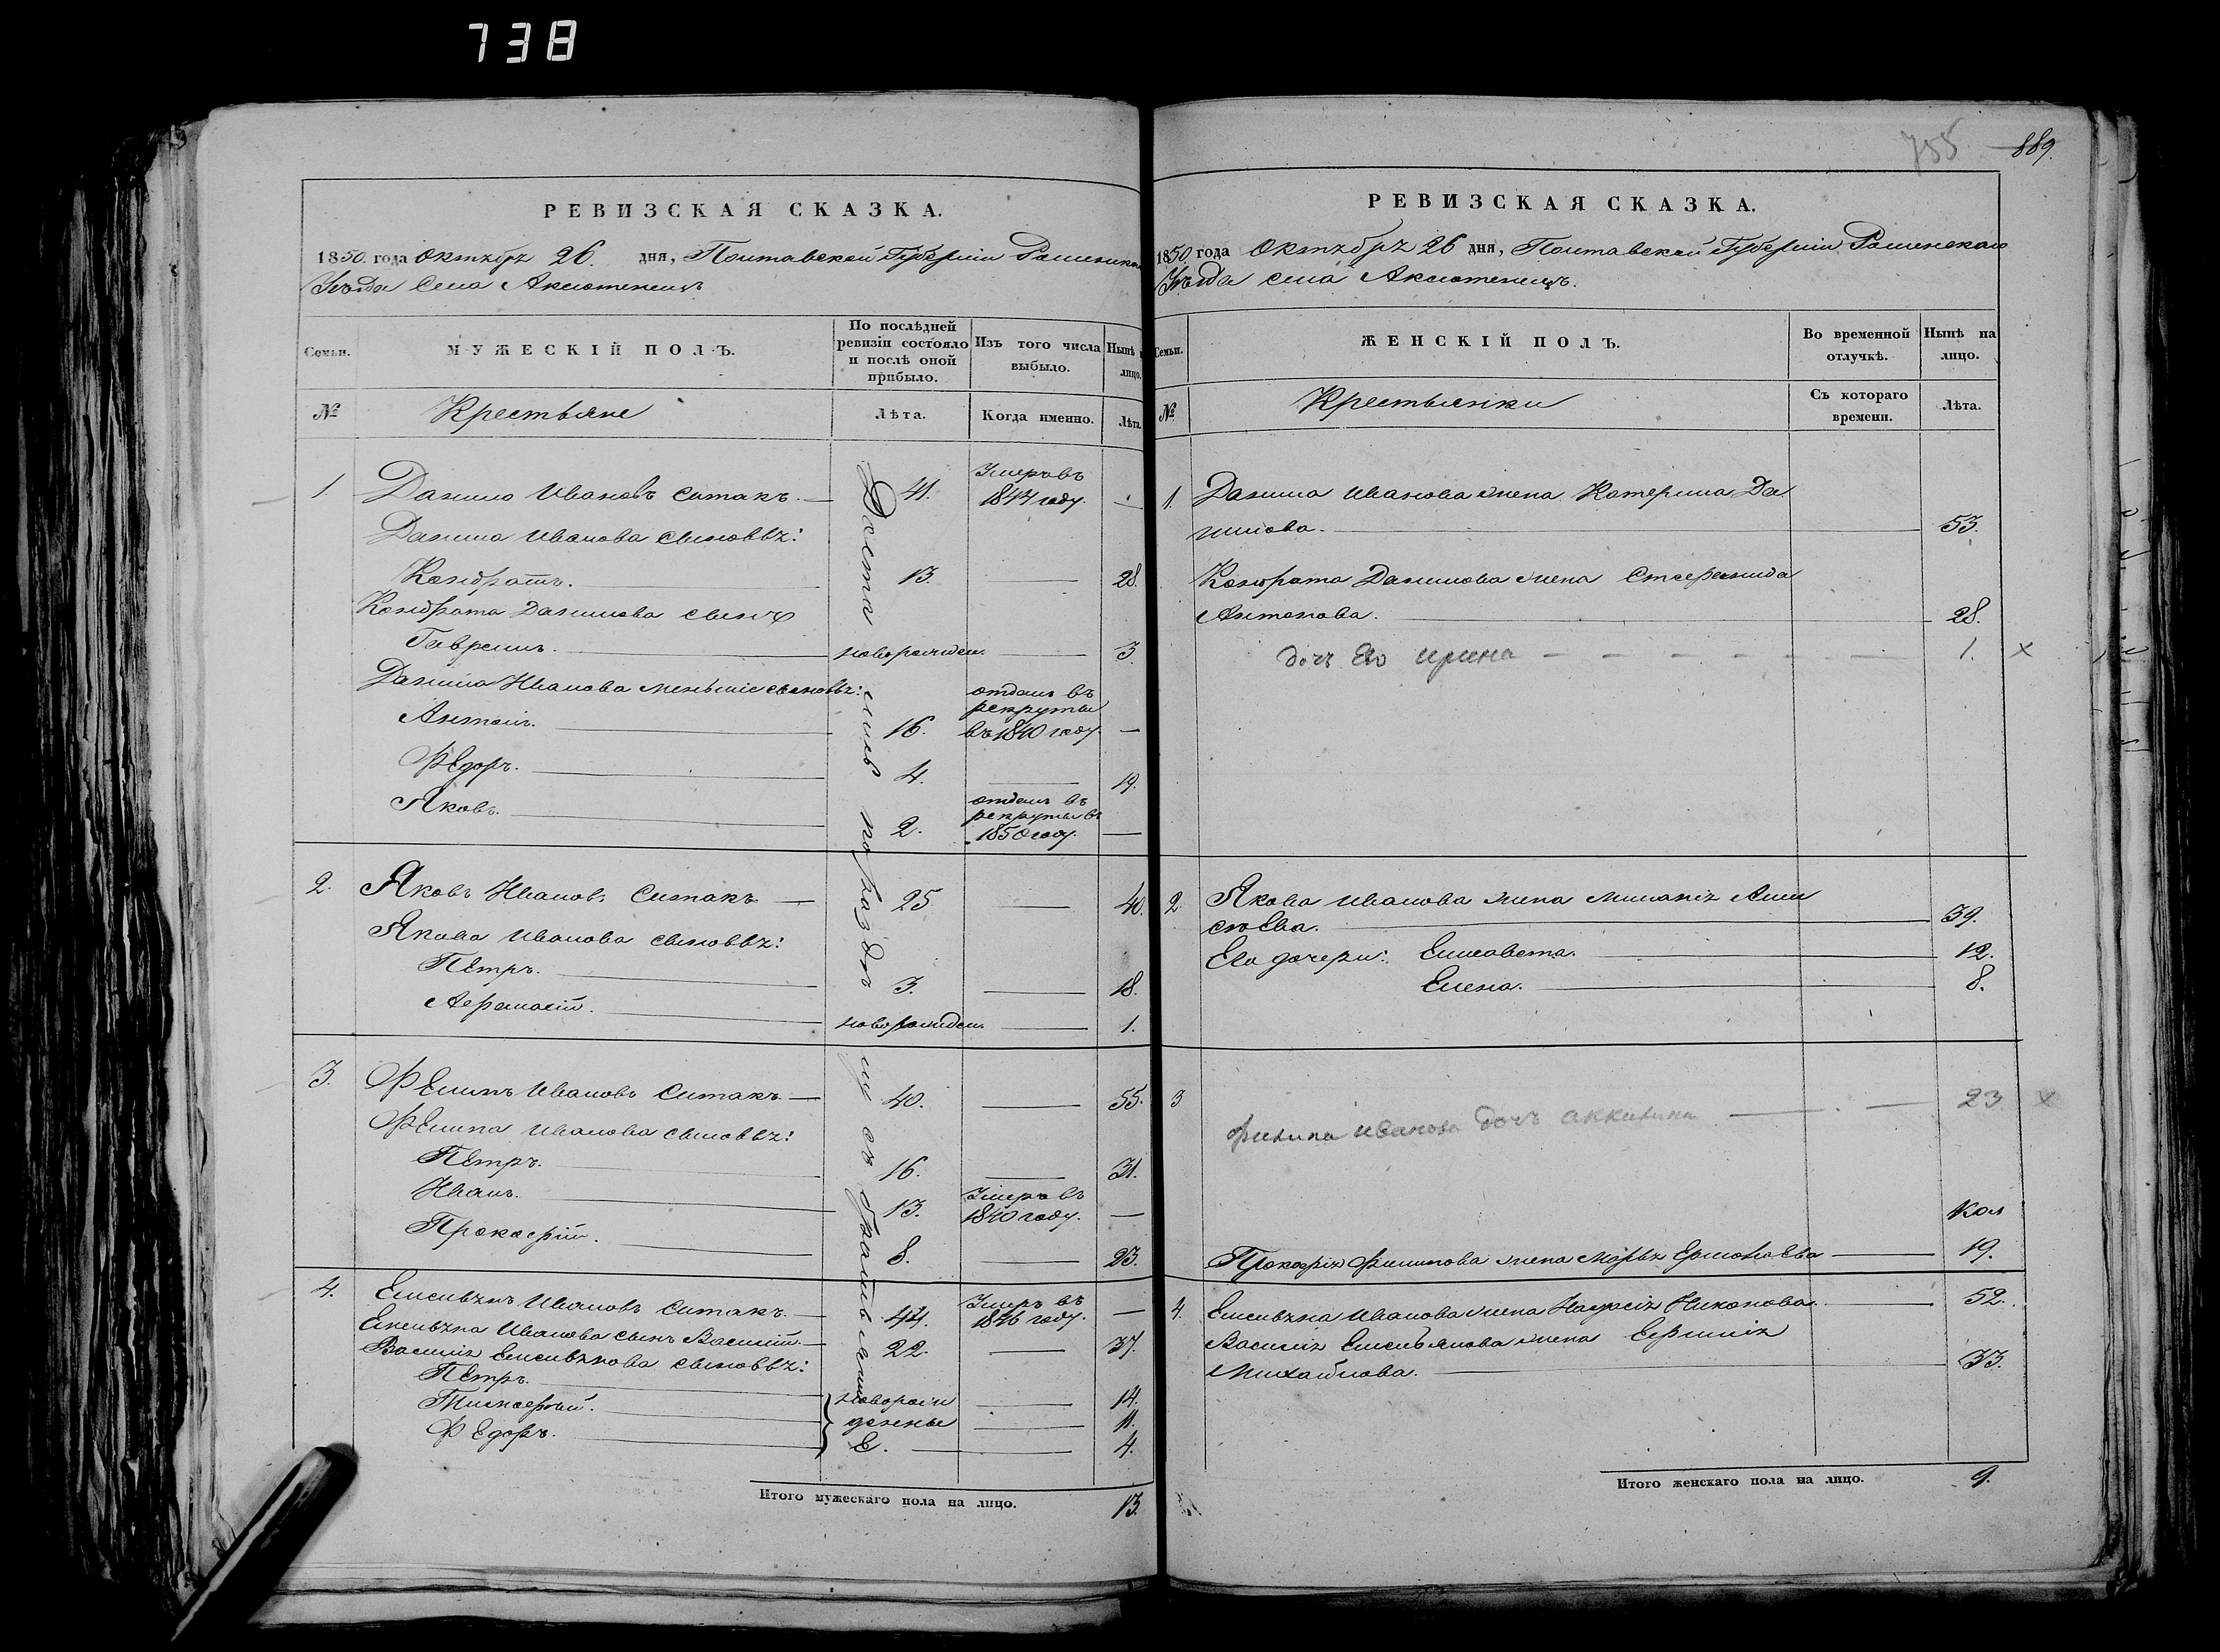 738
РЕВИЗСКАЯ СКАЗКА.
1850. года Октября 26. дня, Полтавской Губерніи Роменскаго
Уѣзда Села Аксютенецъ
Семьи.
МУЖЕСКІЙ ПОЛЪ.
По послѣдней ревизіи состояло и послѣ оной прибыло.
Изъ того числа выбыло.
Нынѣ на лицо.
№
Крестьяне
Лѣта.
Когда именно.
Лѣта.
1. Данило Ивановъ Ситакъ. — 41. Умеръ въ 1844 году. —
Данила Иванова сыновья:
Кондратъ. — 13. — 28.
Кондрата Данилова сынъ
Гаврилъ. — новорожден. — 3.
Данила Иванова меньшіе сыновья:
Антонъ. — 16. отданъ въ рекруты въ 1840 году —
Ѳедоръ. — 4. — 19.
Яковъ. — 2. отданъ въ рекруты въ 1850 году. —
2. Яковъ Ивановъ Ситакъ — 25 — 40.
Якова Иванова сыновья:
Петръ. — 3. — 18.
Афанасій. — новорожден. — 1.
3. Филипъ Ивановъ Ситакъ. — 40. — 55.
Филипа Иванова сыновья:
Петръ. — 16. — 31.
Иванъ. — 13. Умеръ въ 1840 году. —
Прокофій. — 8. — 23.
4. Емельянъ Ивановъ Ситакъ. — 44. Умеръ въ 1846 году. —
Емельяна Иванова сынъ Василій. — 22. — 37.
Василія Емельянова сыновья:
Петръ. — новорож — 14.
Тимофей. — денны — 11.
Ѳедоръ. — е. — 4.
съ братьями
Итого мужескаго пола на лицо. 13.
755 889.
РЕВИЗСКАЯ СКАЗКА.
1850 года Октября 26 дня, Полтавской Губерніи Роменскаго
Уѣзда села Аксютенецъ.
Семьи.
ЖЕНСКІЙ ПОЛЪ.
Во временной отлучкѣ.
Нынѣ на лицо.
№
Крестьянки
Съ котораго времени.
Лѣта.
1. Данила Иванова жена Катерина Да
нилова. — 53.
Кондрата Данилова жена Стефанида
Антонова. — 28.
дочь Его ирина — 1. ×
2. Якова Иванова жена Миланія Али
сѣева. — 39.
Его дочери: Елисавета. — 12.
Елена. — 8.
3 филипа иванова дочь аккилина — 23 ×
Прокофія Филипова жена Марья Ермолаева — 19.
4. Емельяна Иванова жена Настасія Никонова. — 52.
Василія Емельянова жена Ефимія
Михайлова. — 33.
Итого женскаго пола на лицо. 9.